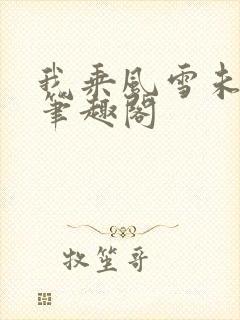 我乘风雪未
笔趣阁
牧笙哥